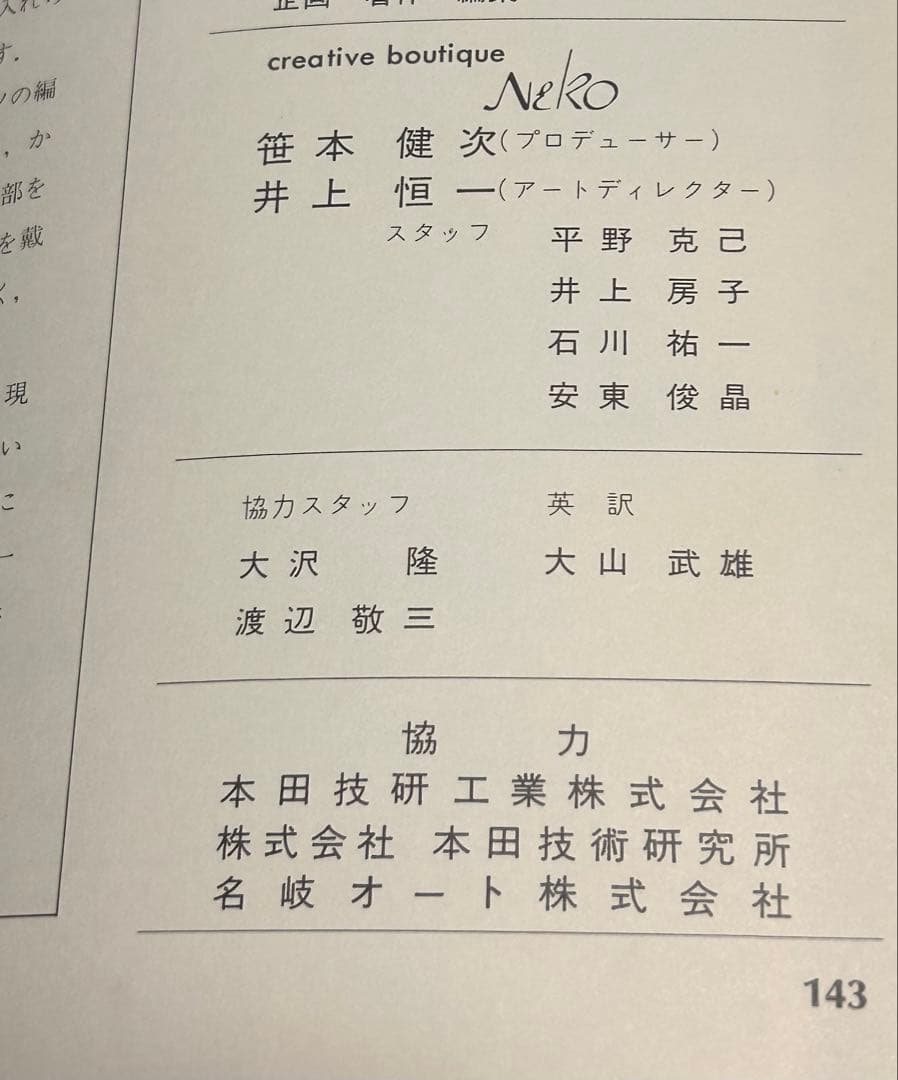 入れ
す.
ンの編
，か
部を
を戴
く，
現
い
こ
ー
企画 著作 編集
creative boutique
Neko
笹本 健次(プロデューサー)
井上 恒一(アートディレクター)
スタッフ 平野 克己
井上 房子
石川 祐一
安東 俊晶
協力スタッフ 英訳
大沢 隆 大山 武雄
渡辺 敬三
協力
本田技研工業株式会社
株式会社 本田技術研究所
名岐オート株式会社
143